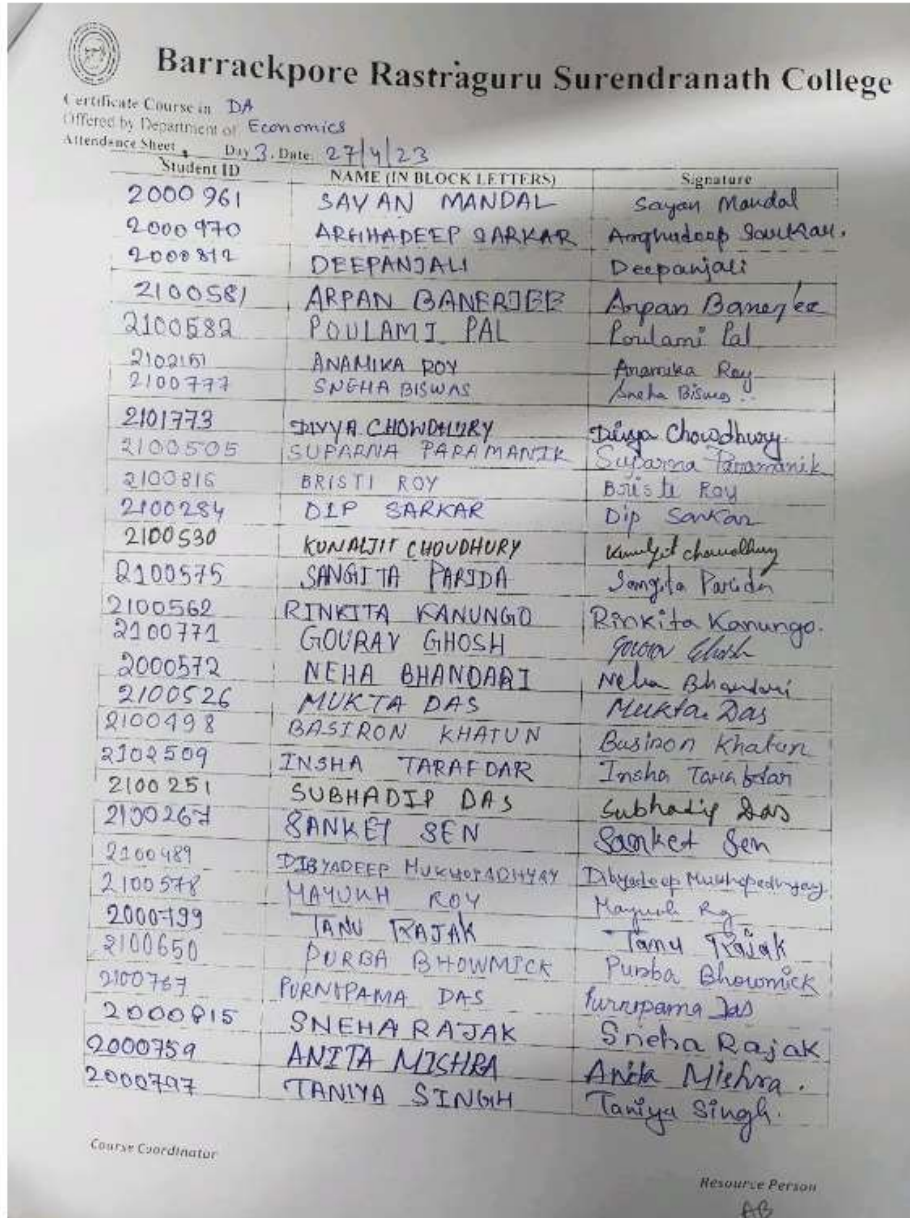 Barrackpore Rastraguru Surendranath College
Certificate Course in DA
Offered by Department of Economics
Attendance Sheet Day 3. Date: 27/4/23
Student ID NAME (IN BLOCK LETTERS) Signature
2000961 SAYAN MANDAL Sayan Mandal
2000970 ARGHADEEP SARKAR Arghadeep Sarkar.
2000812 DEEPANJALI Deepanjali
2100581 ARPAN BANERJEE Arpan Banerjee
2100582 POULAMI PAL Poulami Pal
2102151 ANAMIKA ROY Anamika Roy
2100777 SNEHA BISWAS Sneha Biswas
2101773 DIVYA CHOWDHURY Divya Chowdhury
2100505 SUPARNA PARAMANIK Suparna Paramanik
2100816 BRISTI ROY Bristi Roy
2100284 DIP SARKAR Dip Sarkar
2100530 KUNALJIT CHOUDHURY Kunaljit choudhury
2100575 SANGITA PARIDA Sangita Parida
2100562 RINKITA KANUNGO Rinkita Kanungo.
2100771 GOURAV GHOSH Gourav Ghosh
2000572 NEHA BHANDARI Neha Bhandari
2100526 MUKTA DAS Mukta Das
2100498 BASIRON KHATUN Basiron Khatun
2102509 INSHA TARAFDAR Insha Tarafdar
2100251 SUBHADIP DAS Subhadip Das
2100267 SANKET SEN Sanket Sen
2100489 DIBYADEEP MUKHOPADHYAY Dibyadeep Mukhopadhyay
2100578 MAYUKH ROY Mayukh Roy
2000799 TANU RAJAK Tanu Rajak
2100650 PURBA BHOWMICK Purba Bhowmick
2100767 PURNIPAMA DAS Purnipama Das
2000815 SNEHA RAJAK Sneha Rajak
2000759 ANITA MISHRA Anita Mishra.
2000797 TANIYA SINGH Taniya Singh.
Course Coordinator
Resource Person
AB